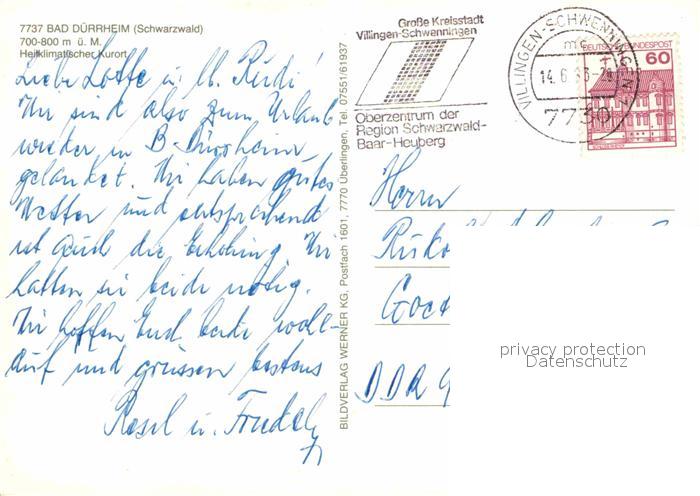 7737 BAD DÜRRHEIM (Schwarzwald)
700-800 m ü. M.
Heilklimatischer Kurort
Liebe Lotte u. lb. Rudi!
Wir sind also zum Urlaub
wieder in B-Dürrheim
gelandet. Wir haben gutes
Wetter und entsprechend
ist auch die Erholung. Wir
hatten sie beide nötig.
Wir hoffen Euch beide wohl-
auf und grüssen bestens
Rosel u. Friedel
BILDVERLAG WERNER KG, Postfach 1601, 7770 Überlingen, Tel. 07551/61937
Große Kreisstadt
Villingen-Schwenningen
Oberzentrum der
Region Schwarzwald-
Baar-Heuberg
VILLINGEN-SCHWENNINGEN 1
mc
14.6.
7730
DEUTSCHE BUNDESPOST
60
Herrn
DDR
privacy protection
Datenschutz